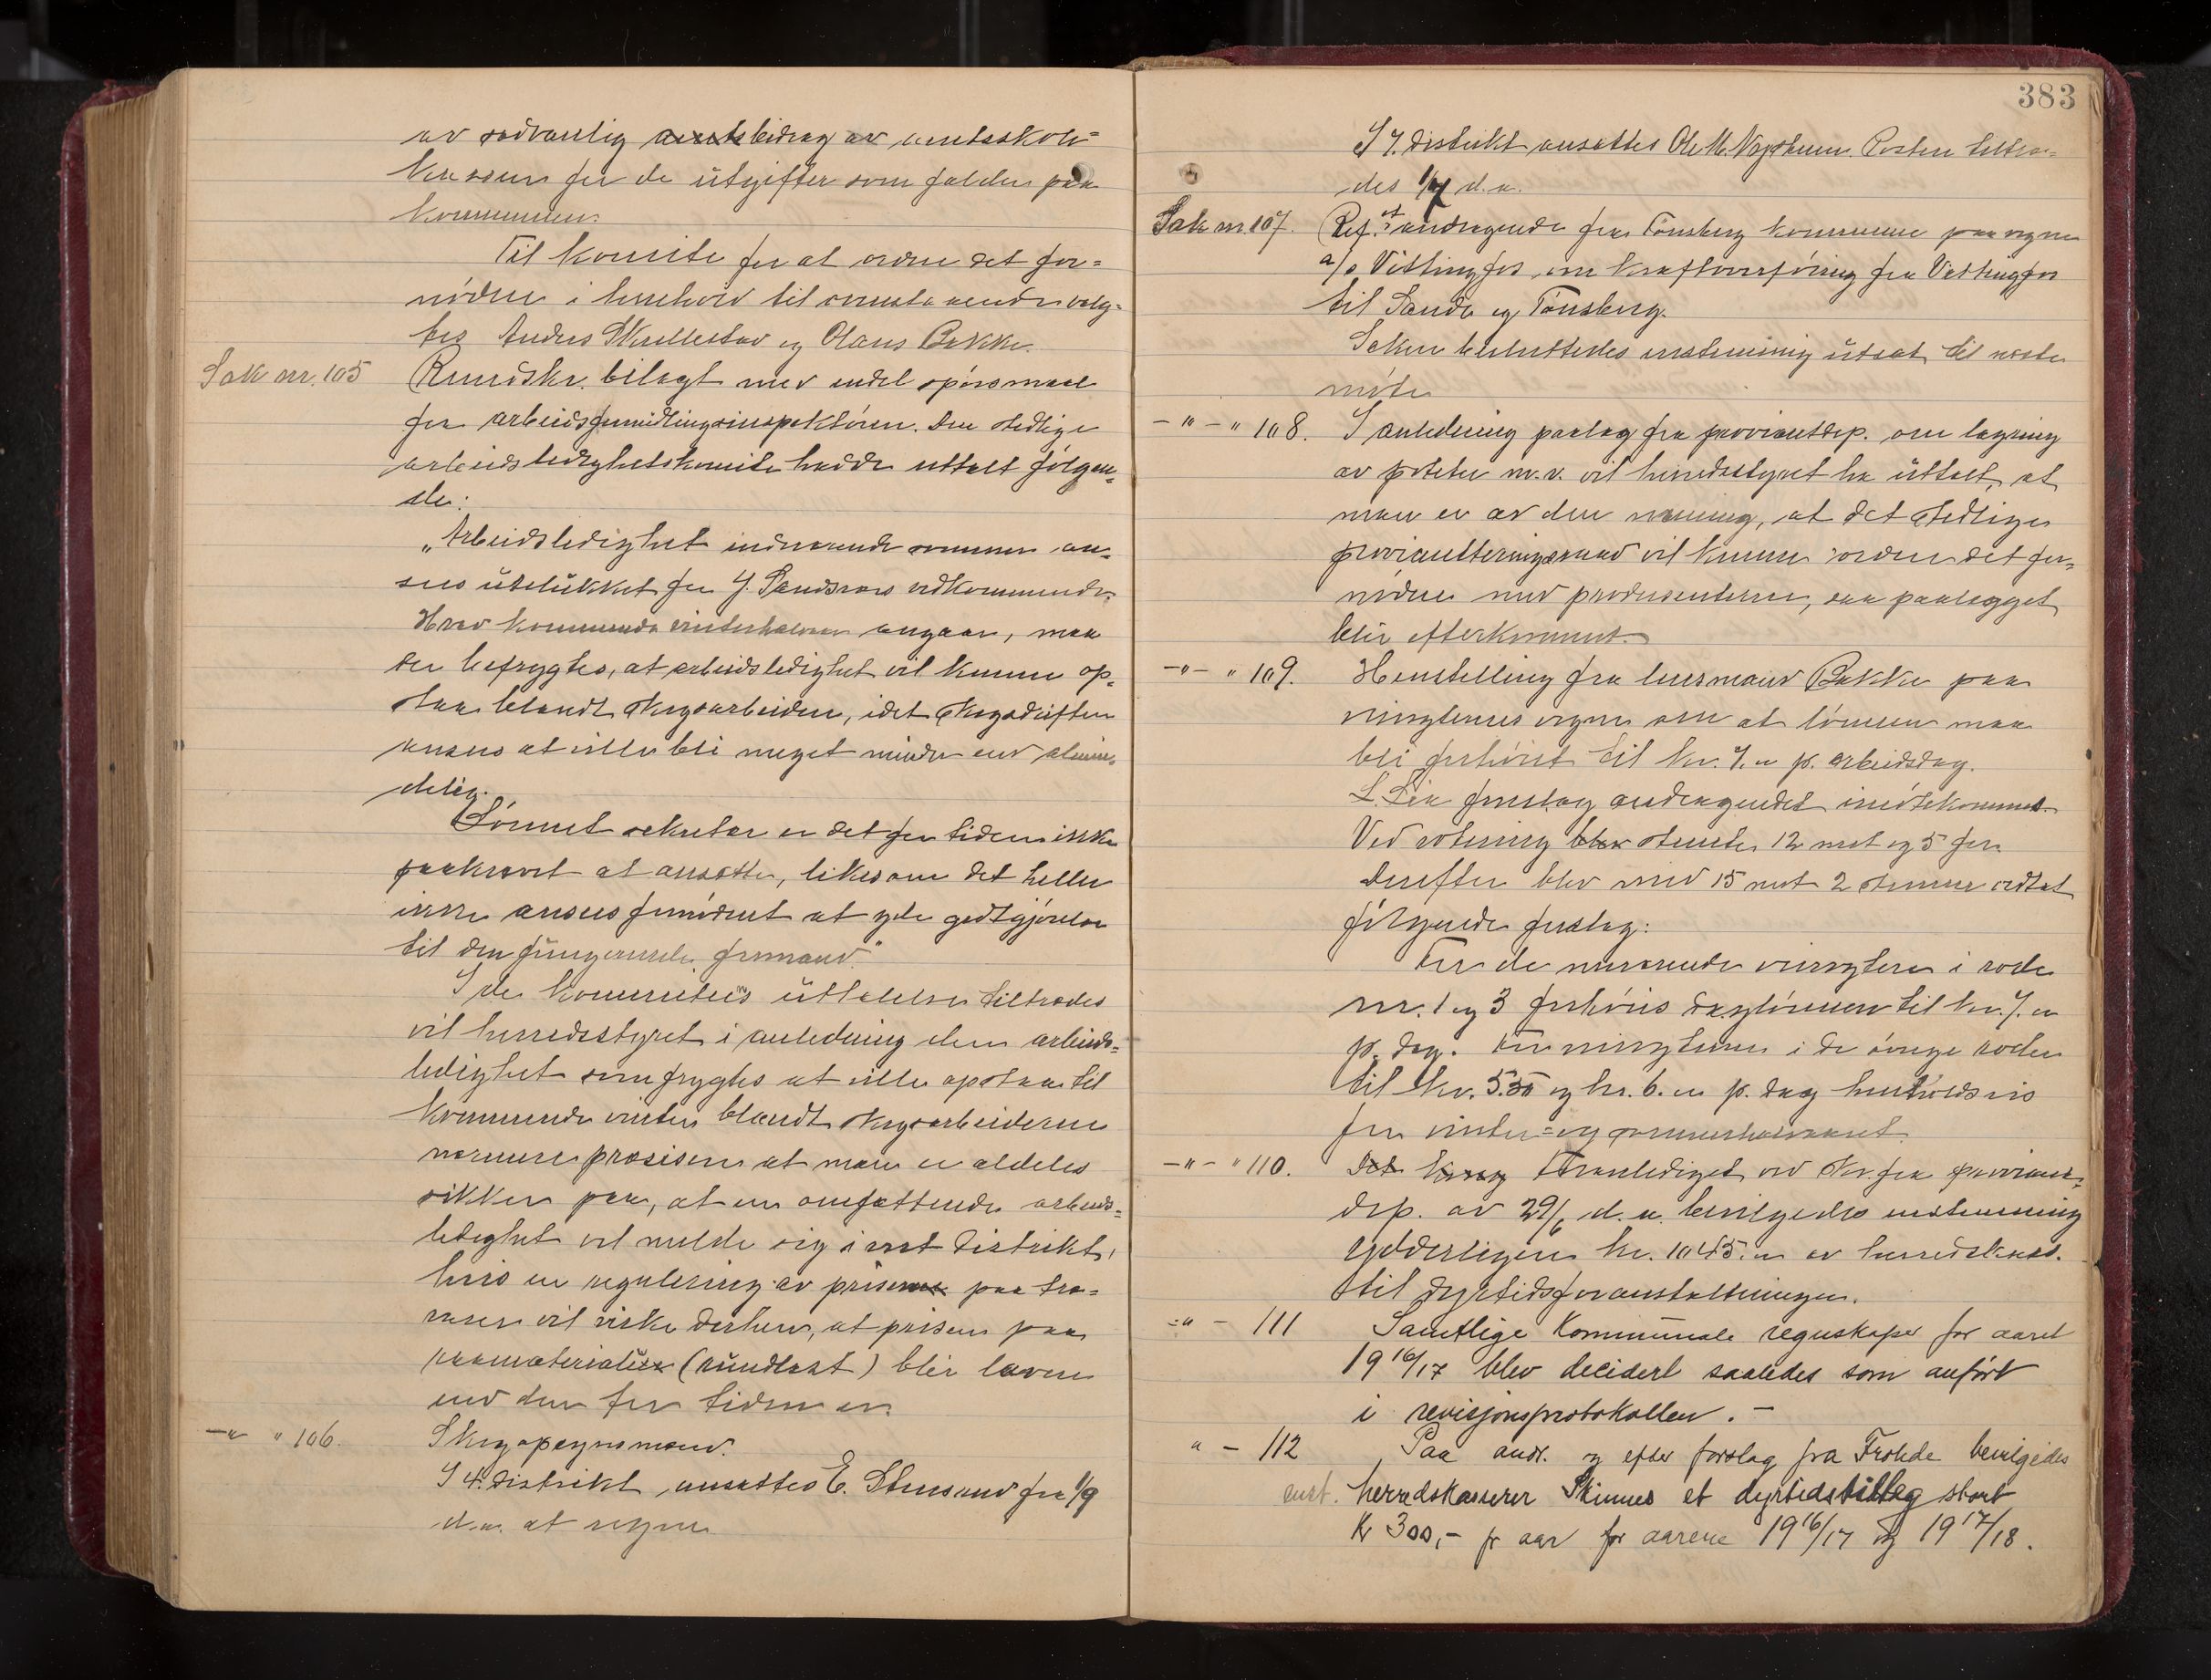 av sedvanlig amtsbidrag av amtsskole=
kassen for de utgifter som falder paa
kommunen.
Til komite for at ordne det for=
nødne i henhold til ovenstaaende valg-
tes Anders Skullestad og Olaus Bakke.
Sak nr. 105 Rundskr. bilagt med endel spørsmaal
fra arbeidsformidlingsinspektøren. Den stedlige
arbeidsledighetskomite hadde uttalt følgen-
de:
„Arbeidsledighet indeværende sommer an-
sees utelukket for Y. Sandsvær vedkommende.
Hvad kommende vinterhalvaar angaar, maa
der befryktes, at arbeidsledighet vil kunne op-
staa blandt skogsarbeidere, idet skogsdriften
ansees at ville bli meget mindre end almin-
delig.
Lønnet sekretær er det for tiden ikke
paakrævet at ansætte, likesom det heller
ikke ansees fornødent at yde godtgjørelse
til den fungerende formand."
I de komiteens uttalelse tiltrædes
vil herredsstyret i anledning den arbeids=
ledighet som frygtes at ville opstaa til
kommende vinter blandt skogsarbeiderne
nærmere præsisere at man er aldeles
sikker paa, at en omfattende arbeids=
ledighet vil melde sig i vort distrikt,
hvis en regulering av prisene paa træ=
varer vil virke derhen, at prisen paa
raamaterialet (rundlast) blir lavere
end den for tiden er.
-"- " 106. Skogopsynsmænd.
I 4. distrikt ansattes E. Stensand fra 1/9
d.a. at regne.
383
I 7. distrikt ansattes Ole M. Tiltræ=
des 1/7 d.a.
Sak nr. 107. Ref. et andragende fra Tønsberg kommune paa vegne
a/s Vittingfos om kraftoverføring fra Vittingfos
til Sande og Tønsberg.
Saken besluttedes enstemmig utsat til næste
møte
-"- " 108. I anledning paalæg fra proviantdep. om lagring
av poteter m.v. vil herredsstyret ha uttalt, at
man er av den mening, at det stedlige
provianteringsraad vil kunne ordne det for-
nødne med producenterne, saa paalægget
blir efterkommet.
-"- " 109. Henstilling fra lensmand Bakke paa
vegne om at lønnen maa
bli forhøiet til kr. 7.00 p. arbeidsdag.
L. Lia foreslog andragendet imøtekommet.
Ved votering blev stemte 12 mot og 5 for.
Derefter blev med 15 mot 2 stemmer vedtat
følgende forslag:
For de nuværende i rode
nr. 1 og 3 forhøies daglønnen til kr. 7.00
p. dag. For i de øvrige roder
til kr. 5.50 og kr. 6.00 p. dag henholdsvis
for vinter= og sommerhalvaaret.
-"- " 110. Foranlediget ved skr. fra proviant-
dep. av 29/6 d.a. bevilgedes enstemmig
ydderligere kr. 1045.00 av herredskas.
til dyrtidsforanstaltninger.
-"- 111 Samtlige kommunale regnskaper for aaret
1916/17 blev decidert saaledes som anført
i revisjonsprotokollen. -
" - 112 Paa andr. og efter forslag fra Frolede bevilgedes
enst. herredskasserer Skinnes et dyrtidstillæg stort
Kr 300,- pr aar for aarene 1916/17 og 1917/18.